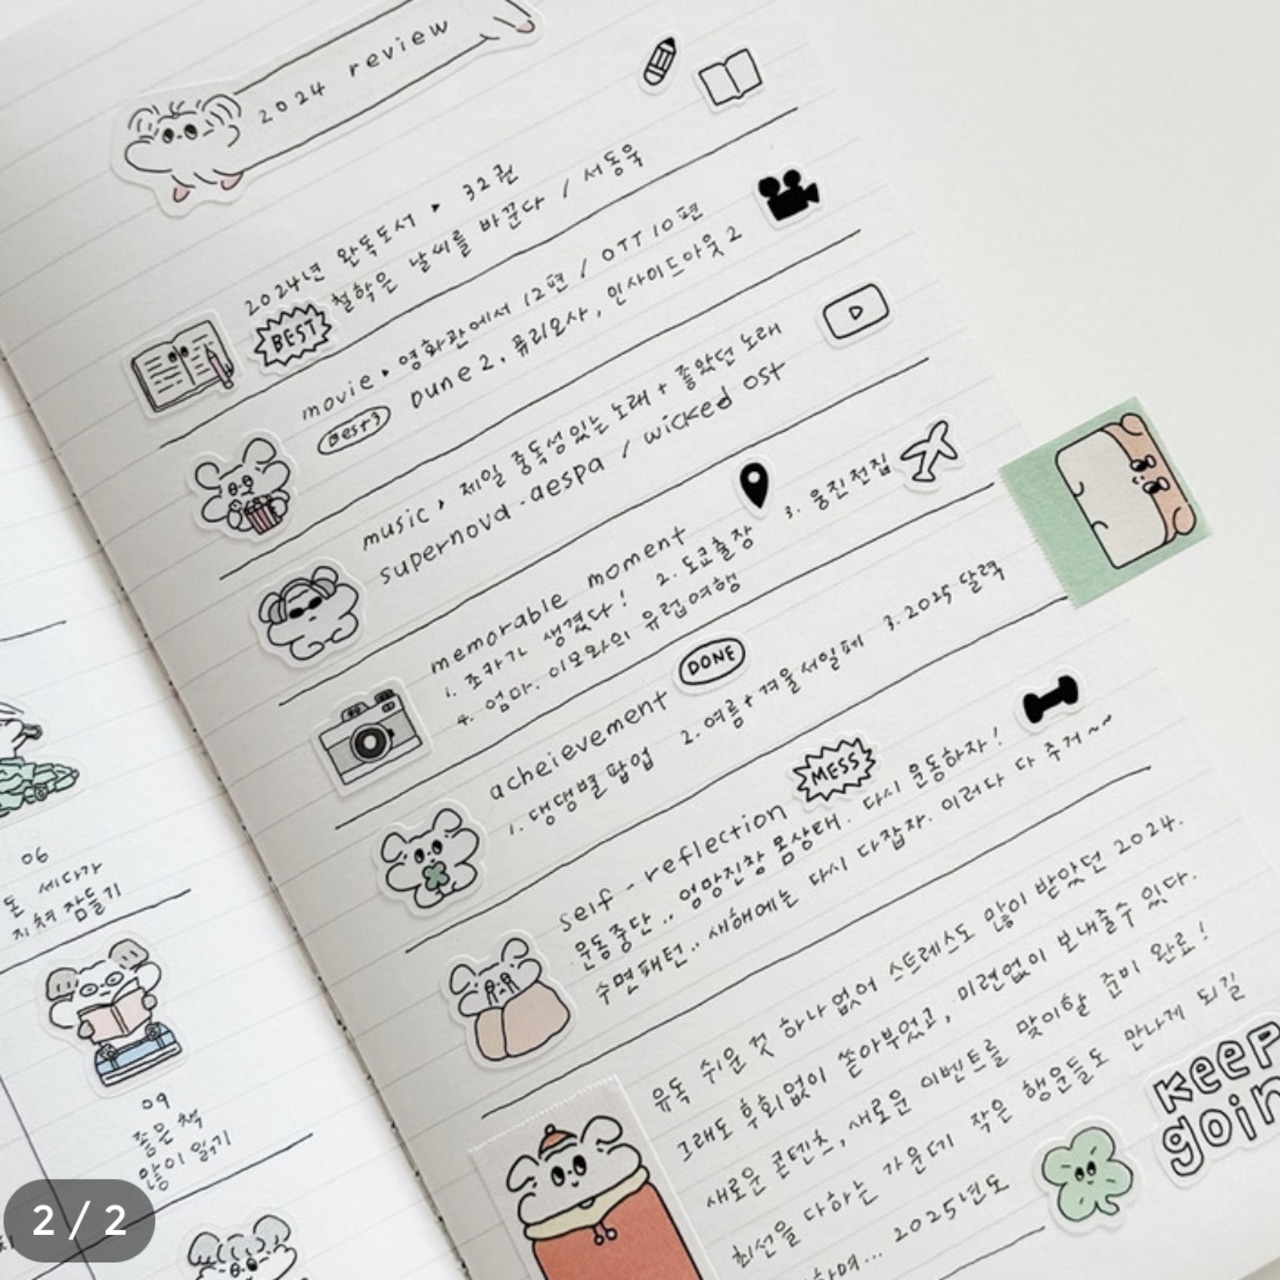 2024 review
2024년 완독도서 ▸ 32권
BEST 철학은 날씨를 바꾼다 / 서동욱
movie ▸ 영화관에서 12편 / OTT 10편
Best3 Dune 2, 퓨리오사, 인사이드아웃 2
music ▸ 제일 중독성있는 노래 + 좋았던 노래
supernova - aespa / wicked ost
memorable moment
1. 조카가 생겼다! 2. 도쿄출장 3. 웅진전집
4. 엄마. 이모와의 유럽여행
acheievement DONE
1. 댕댕별 팝업 2. 여름+겨울서일페 3. 2025 달력
self-reflection MESS
운동중단.. 엉망진창 몸상태. 다시 운동하자!
수면패턴.. 새해에는 다시 다잡자. 이러다 다 주거~~
유독 쉬운 것 하나 없어 스트레스도 많이 받았던 2024.
그래도 후회없이 쏟아부었고, 미련없이 보내줄수 있다.
새로운 콘텐츠, 새로운 이벤트를 맞이할 준비 완료!
최선을 다하는 가운데 작은 행운들도 만나게 되길
2025년도
KEEP
goin
06
돈 세다가
지쳐 잠들기
09
좋은 책
많이 읽기
2 / 2